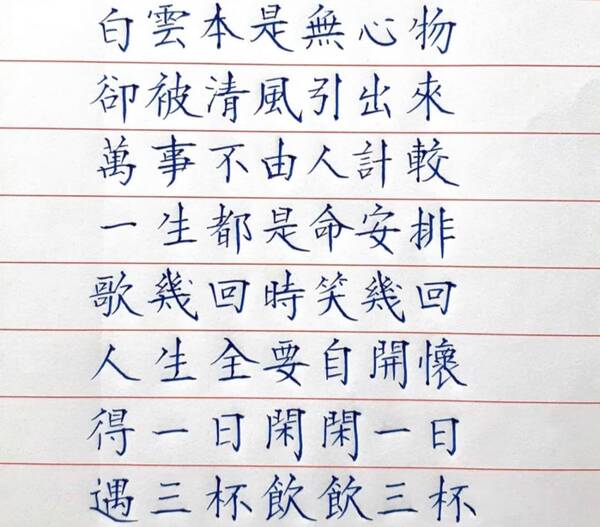 白雲本是無心物
卻被清風引出來
萬事不由人計較
一生都是命安排
歌幾回時笑幾回
人生全要自開懷
得一日閑閑一日
遇三杯飲飲三杯